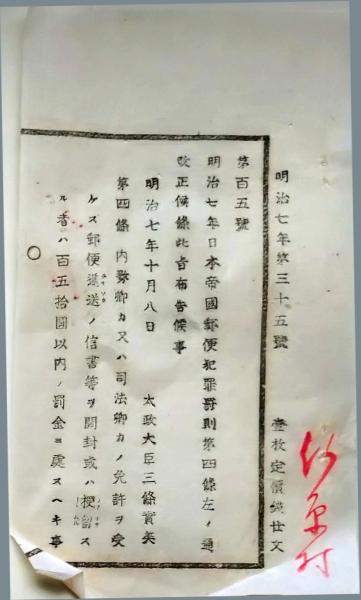 明治七年第三十五號
壹枚定價錢廿文
第百五號
明治七年日本帝國郵便犯罪罸則第四條左ノ通
改正候條此旨布告候事
明治七年十月八日
太政大臣三條實美
第四條 内務卿カ又ハ司法卿カノ免許ヲ受
ケス郵便遞送ノ信書等ヲ開封或ハ梗留ス
ル者ハ百五拾圓以内ノ罰金ニ處スヘキ事
○